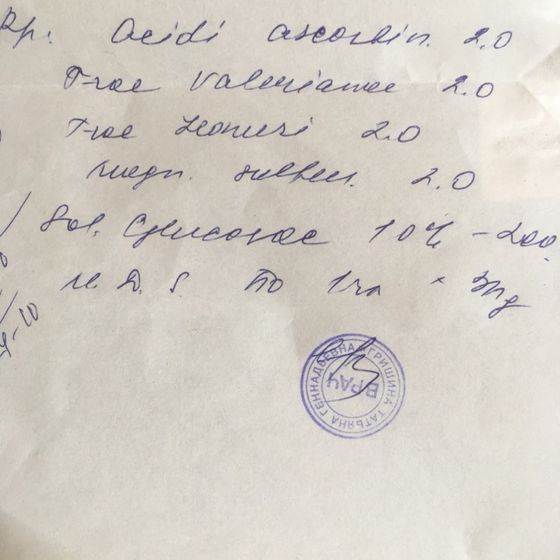 Rp: Acidi ascorbin. 2.0
T-rae Valerianae 2.0
T-rae Leonuri 2.0
Magn. sulfur. 2.0
Sol. Glucosae 10% - 200
M. D. S. По 1 ч л × 3 р д
ГРИШИНА ТАТЬЯНА ГЕННАДЬЕВНА
ВРАЧ